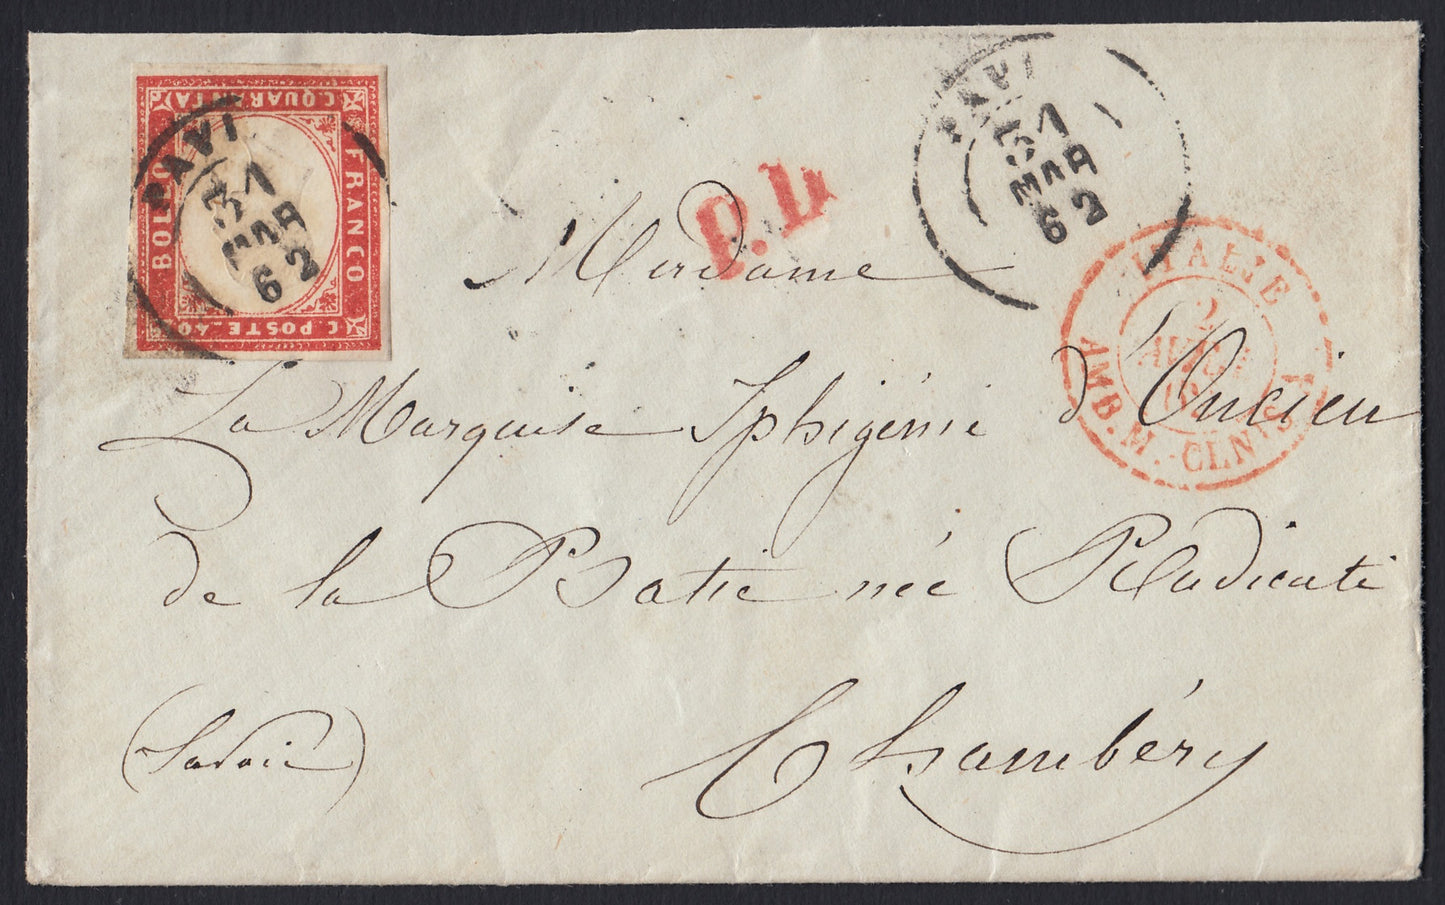 C. QUARANTA
BOLLO
FRANCO
C. POSTE. 40
PAVI
31
MAR
62
PAVI
31
MAR
62
P.D.
ITALIE
2
AMB. M.-CENIS
Madame
La Marquise Iphigénie d'Oncieu
de la Batie née Radicati
Chambéry
(Savoie)